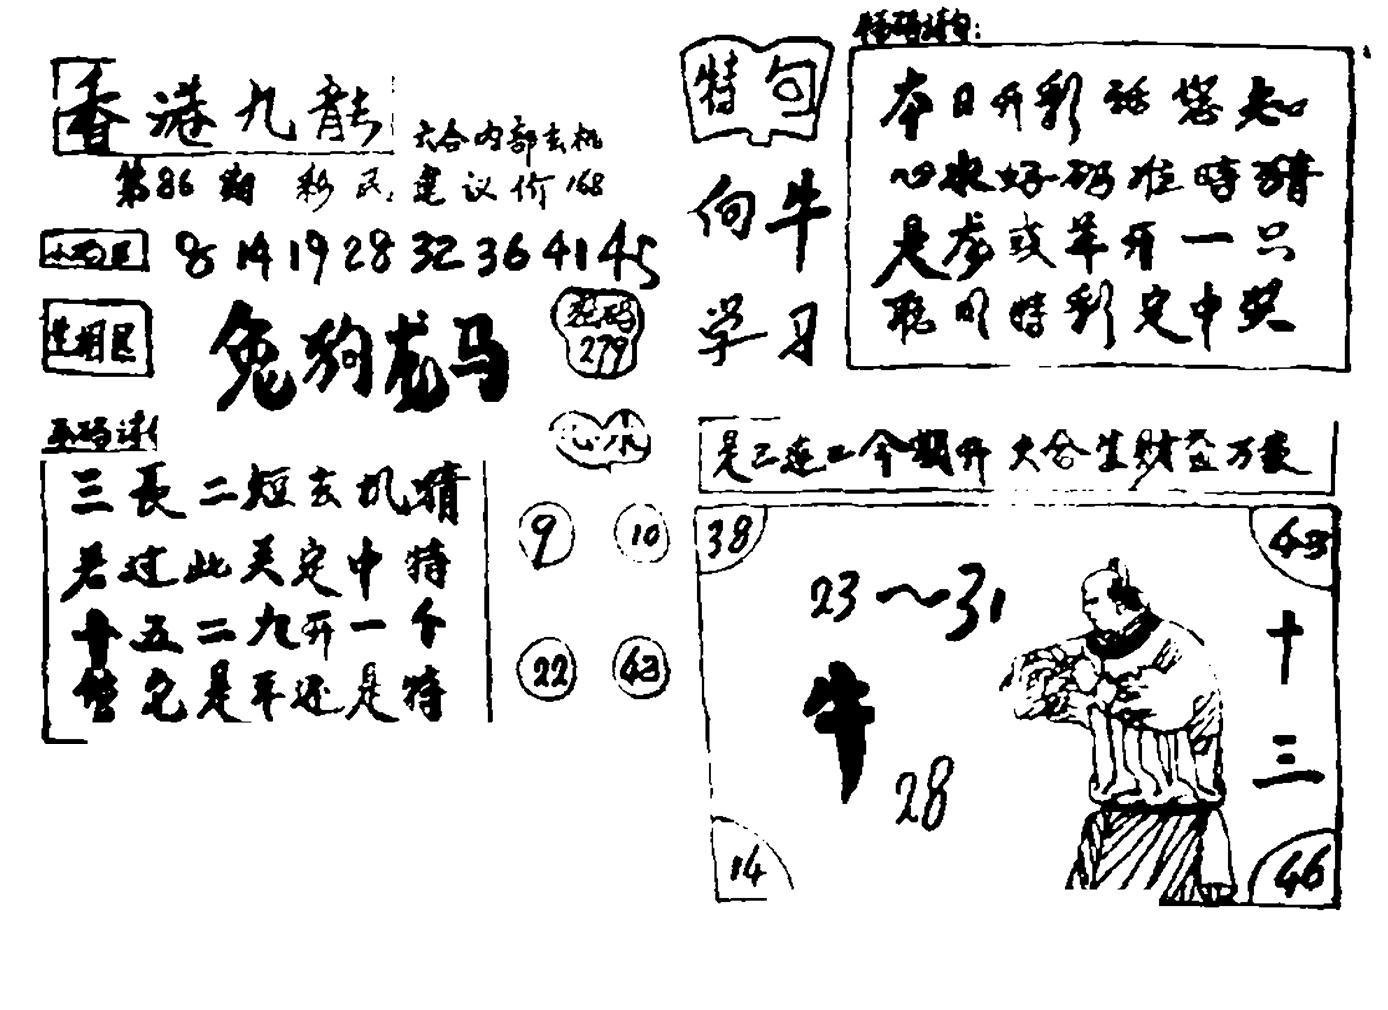 香港九龍
六合内部玄机
第86期 彩民建议价168
8 14 19 28 32 36 41 45
生相区
兔狗龙马
密码
279
心水
三長二短玄机猜
若过此关定中特
十五二九开一个
是羊还是特
9 10
22 43
特句
向牛
学习
特码诗句:
本日开彩话您知
心水好码准時猜
是龙或羊开一只
定中奖
是二连二今期开 六合生财益万家
38
43
23～31
牛
28
十三
14
46